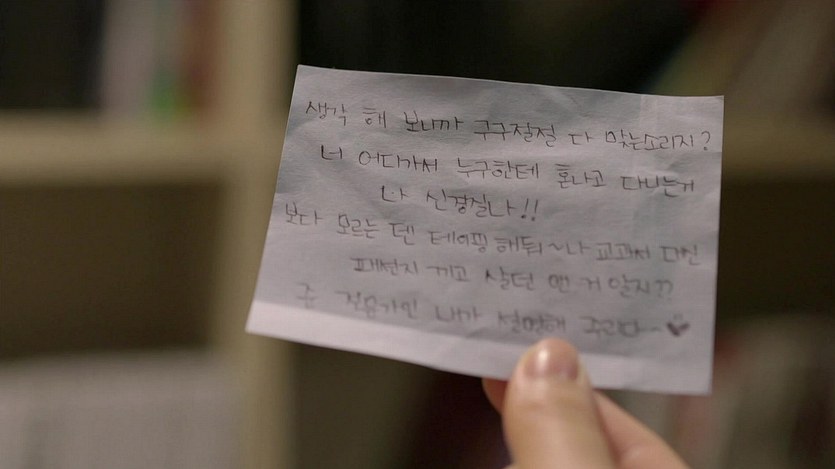 생각 해 보니까 구구절절 다 맞는소리지?
너 어디가서 누구한테 혼나고 다니는거
나 신경질나!!
보다 모르는 덴 테이핑 해둬~나 교과서 대신
패션지 끼고 살던 앤 거 알지??
준 전문가인 내가 설명해 주리다~♥